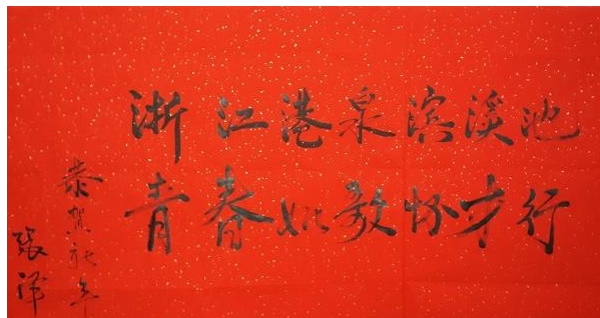 浙江港泉滨溪池
青春如歌怀才行
恭贺新年
张泽